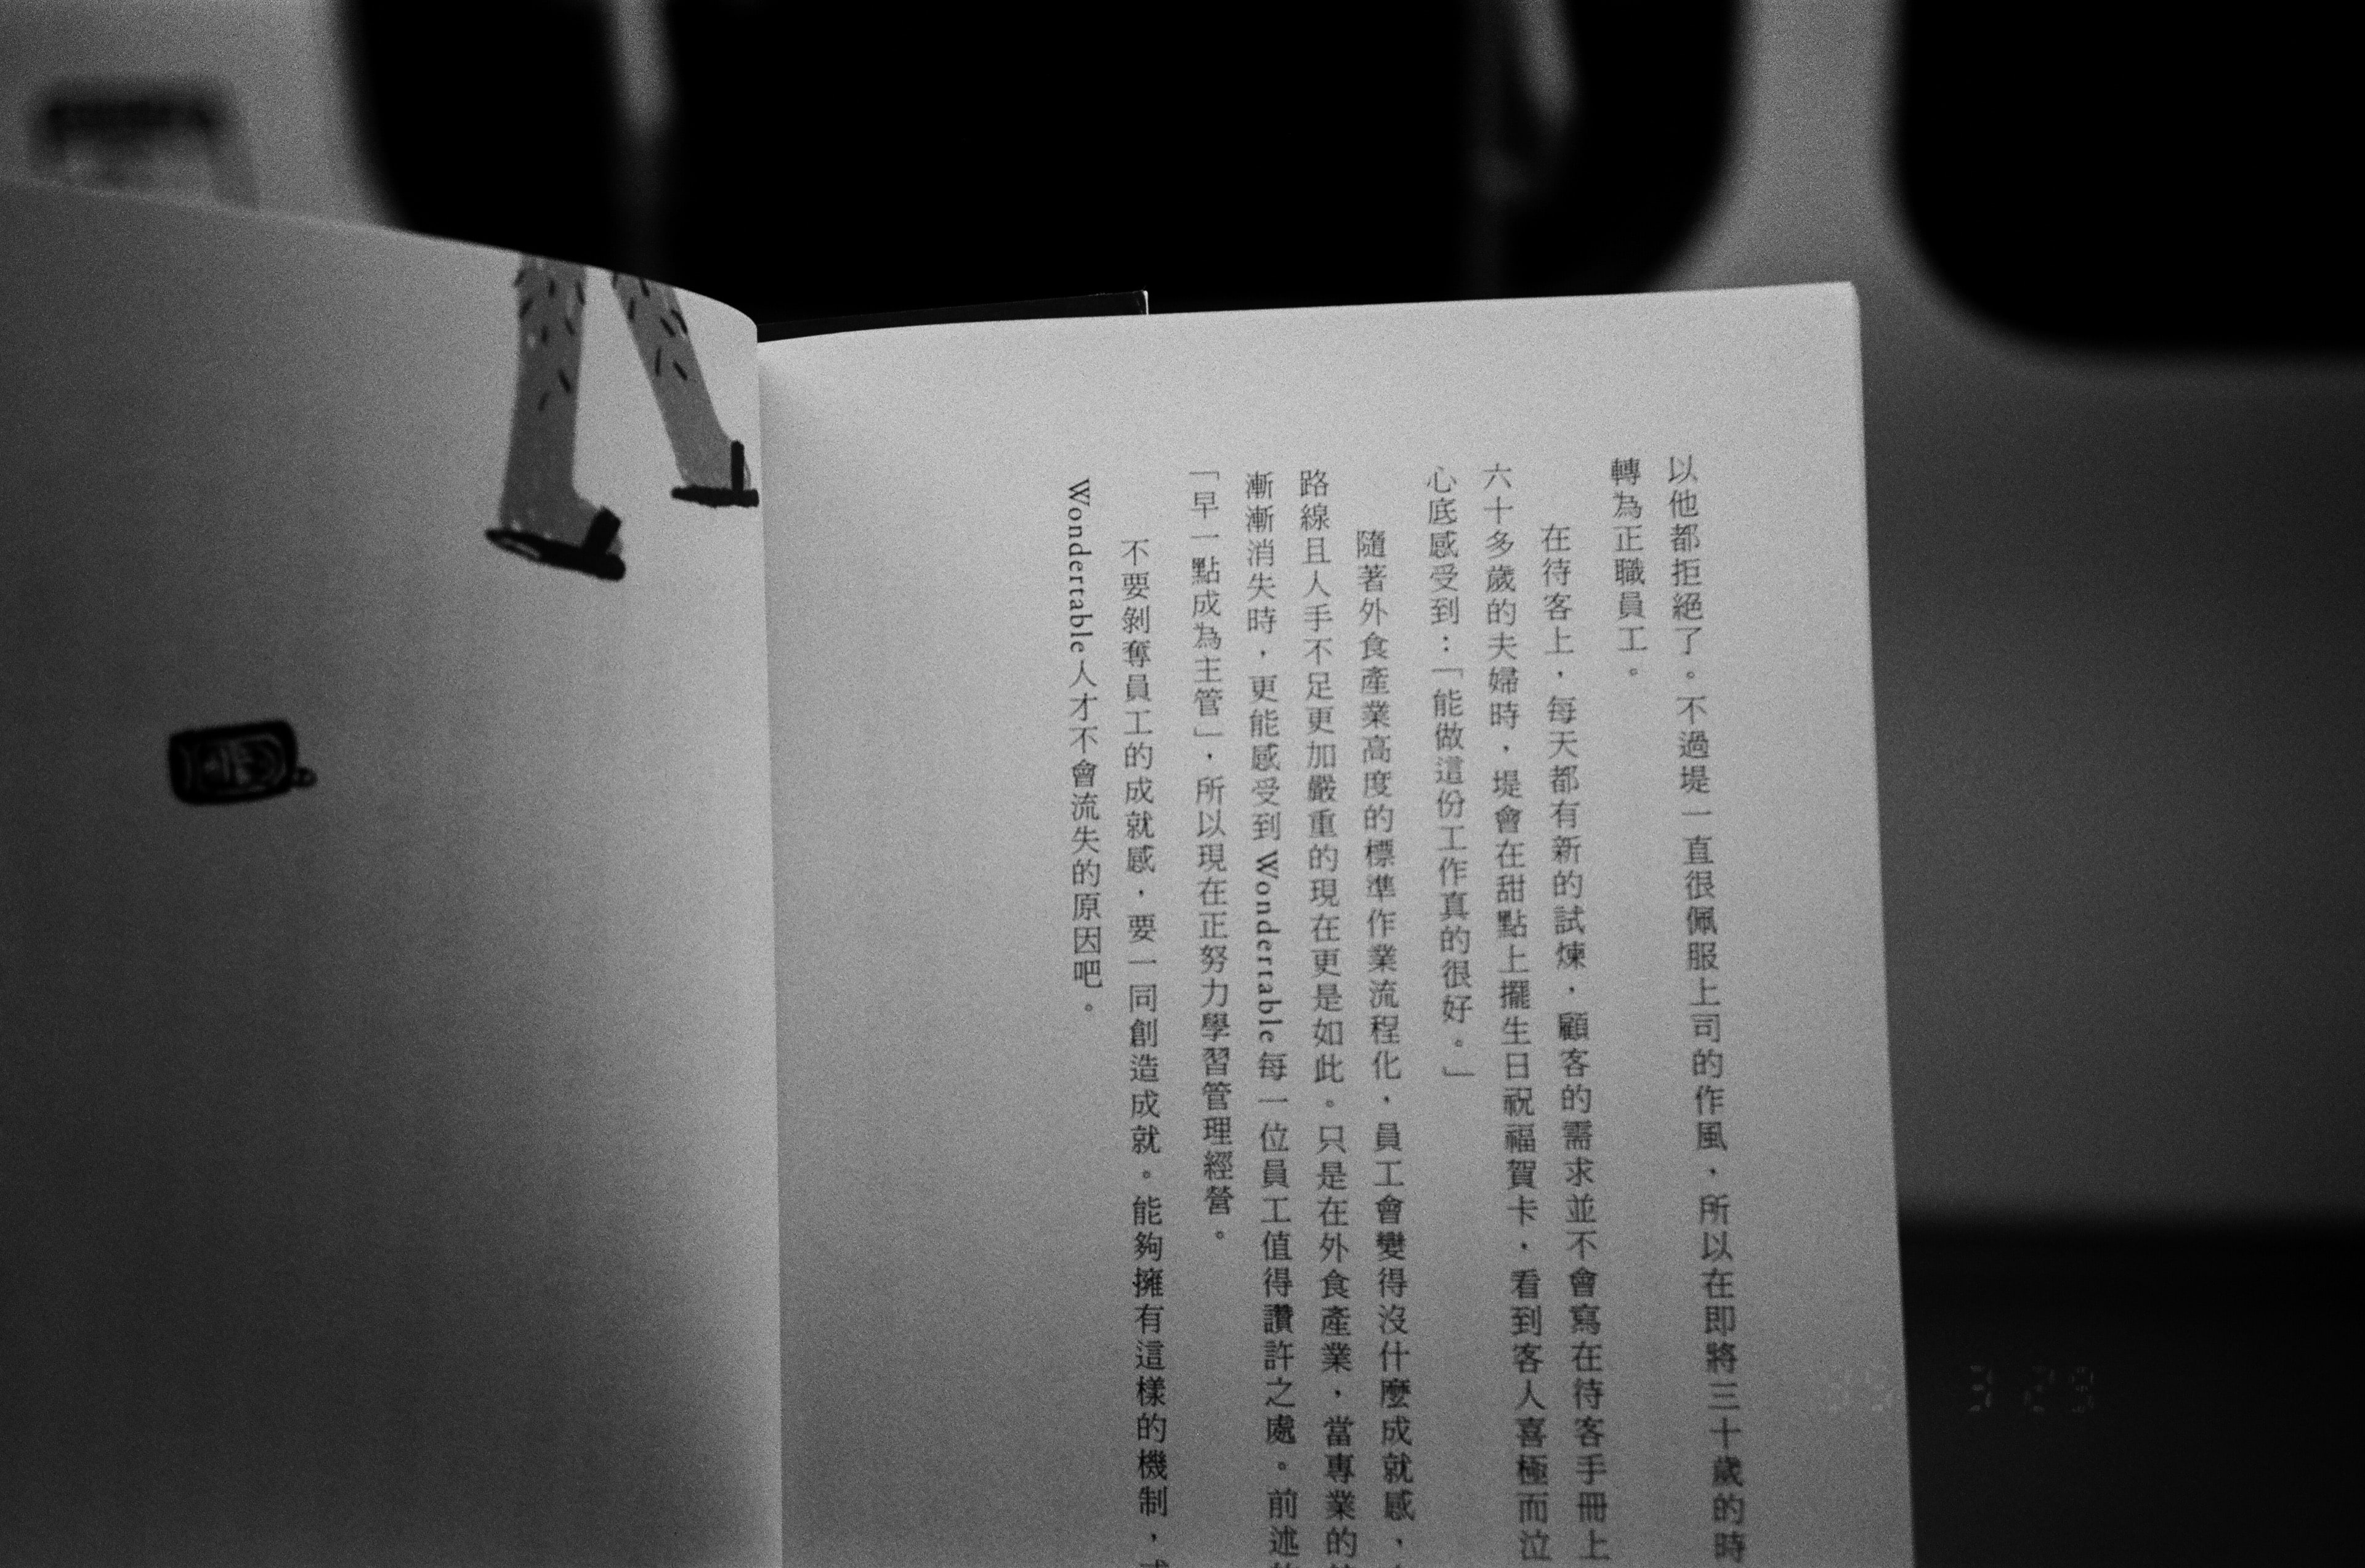 以他都拒絕了。不過堤一直很佩服上司的作風，所以在即將三十歲的時
轉為正職員工。
在待客上，每天都有新的試煉，顧客的需求並不會寫在待客手冊上
六十多歲的夫婦時，堤會在甜點上擺生日祝福賀卡，看到客人喜極而泣
心底感受到：「能做這份工作真的很好。」
隨著外食產業高度的標準作業流程化，員工會變得沒什麼成就感，
路線且人手不足更加嚴重的現在更是如此。只是在外食產業，當專業的
漸漸消失時，更能感受到 Wondertable 每一位員工值得讚許之處。前述
「早一點成為主管」，所以現在正努力學習管理經營。
不要剝奪員工的成就感，要一同創造成就。能夠擁有這樣的機制，
Wondertable 人才不會流失的原因吧。